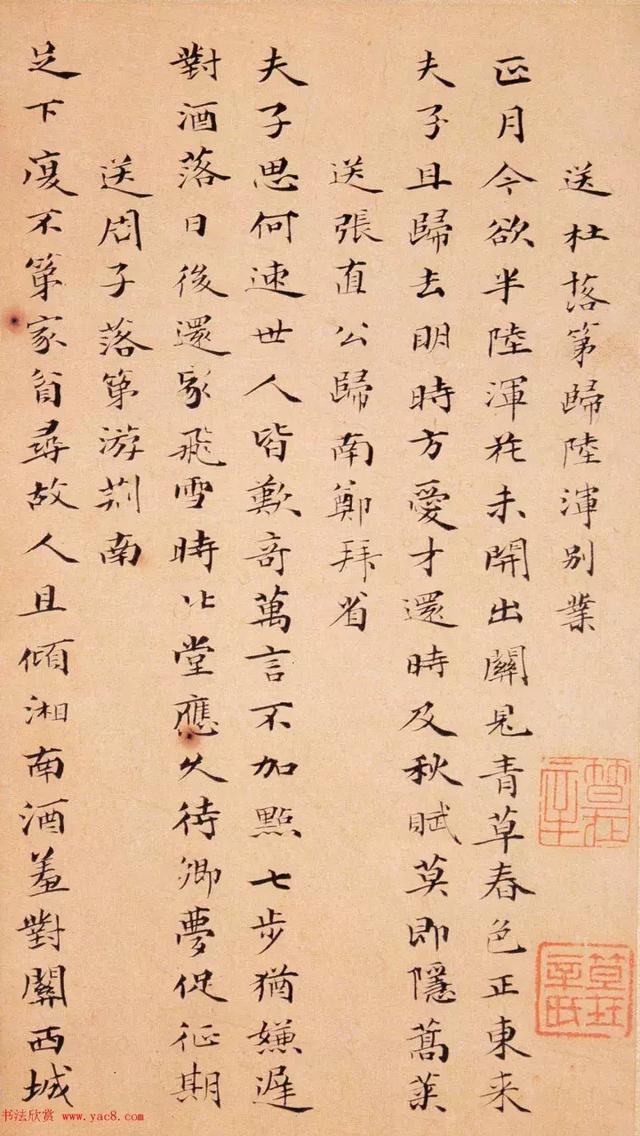 送杜落第歸陸渾别業
正月今欲半陸渾花未開出關見青草春色正東来
夫子且歸去明時方愛才還時及秋賦莫即隱蒿萊
送張直公歸南鄭拜省
夫子思何速世人皆歎奇萬言不加點七步猶嫌遲
對酒落日後還家飛雪時北堂應久待鄉夢促征期
送周子落第游荆南
足下不第家貧尋故人且傾湘南酒羞對關西城
书法欣赏 www.yac8.com